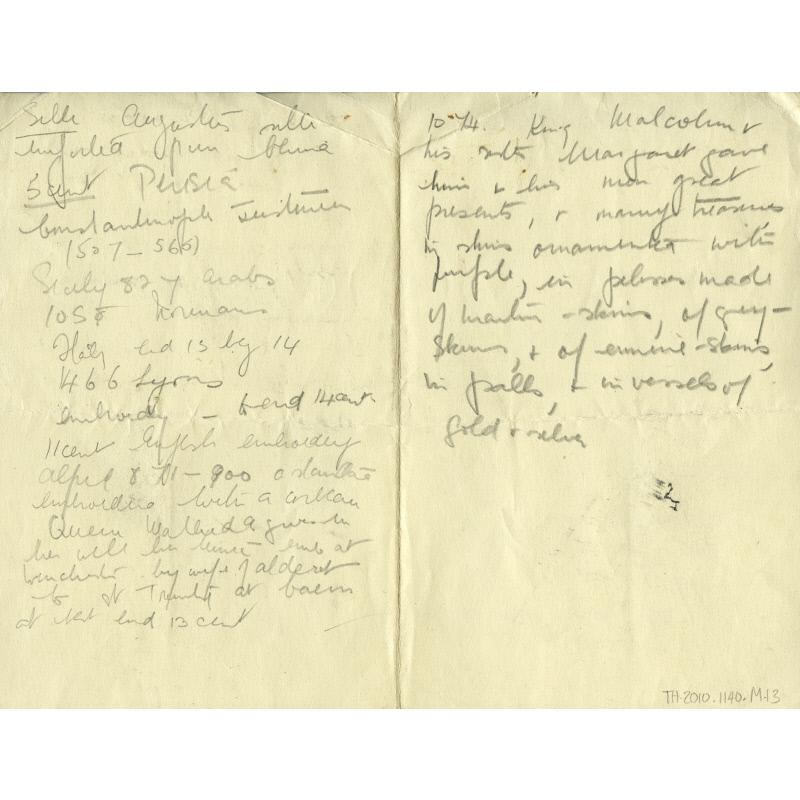 Silk Augustus silk
imported from China
5 cent Persia
Constantinople Justinian
(527 – 566)
Sicily 827 Arabs
105 Normans
Italy end 13 beg 14
1466 Lyons
embroidery – to end 14 cent
11 cent English embroidery
Alfred 871–900
embroideries with a certain
Queen Matilda gives in
her will her tunic emb at
Winchester by wife of Alderet
to St Trinité at Caen
at end 13 cent
1074. King Malcolm &
his sister Margaret gave
him & his men great
presents, & many treasures
in skins ornamented with
purple, in pelisses made
of martin-skins, of grey-
skins, & of ermine-skins,
in palls, & in vessels of
gold & silver
TH.2010.1140.M.13